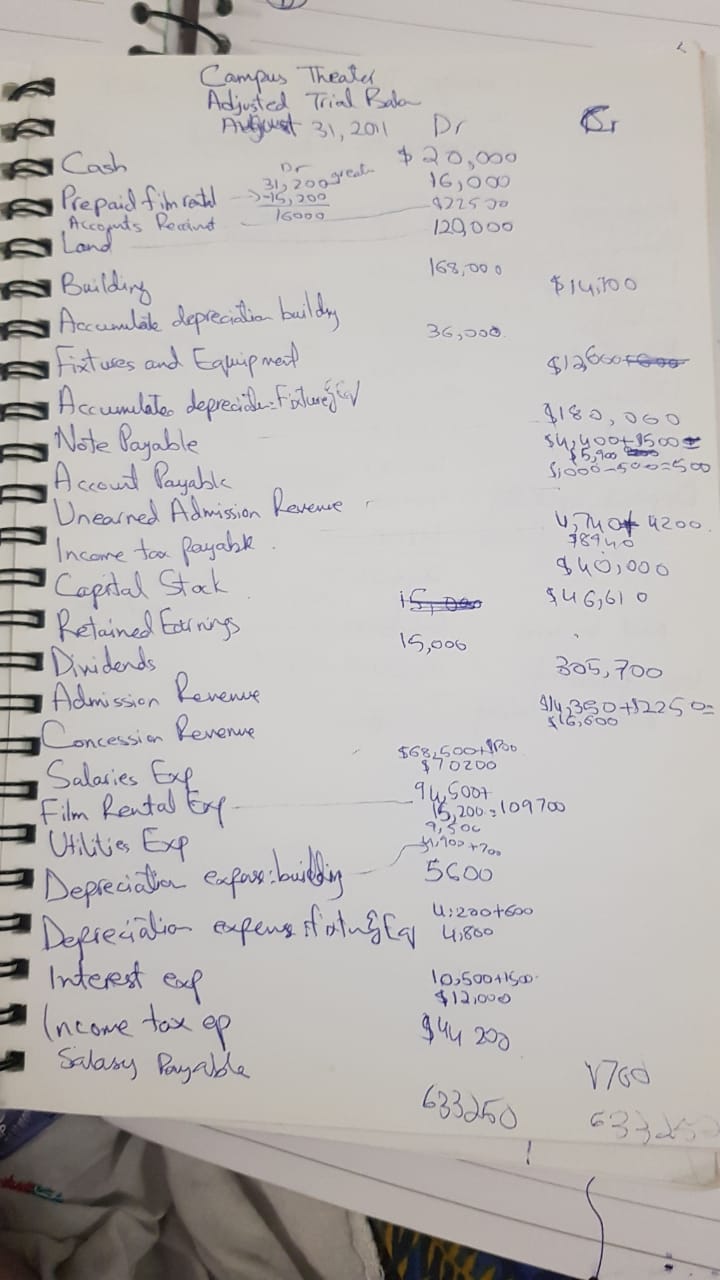 Campus Theater
Adjusted Trial Bala
August 31, 2011 Dr Cr
Cash $20,000
Prepaid film rental Dr 31,200 great 16,000
-15,200
16000
Accounts $22500
Land 120,000
Building 168,000
Accumulate depreciation building $14,700
Fixtures and Equipment 36,000
Accumulated depreciation: Fixture & Eq $12,600
Note Payable $180,000
Account Payable $4,400+1500=
$5,900
Unearned Admission Revenue $1,000-500=500
Income tax Payable 4,740+4200
$8940
Capital Stock $40,000
Retained Earnings 15,000 $46,610
Dividends 15,000
Admission Revenue 305,700
Concession Revenue $14,350+$2250=
$16,600
Salaries Exp $68,500+$1700
$70200
Film Rental Exp 94,500+
15,200=109700
Utilities Exp 9,500
4,900+700
Depreciation expense: building 5600
4,200+600
Depreciation expens: fixtur & Eq 4,800
Interest exp 10,500+1500
$12,000
Income tax ep $44200
Salary Payable 1700
633250 633250